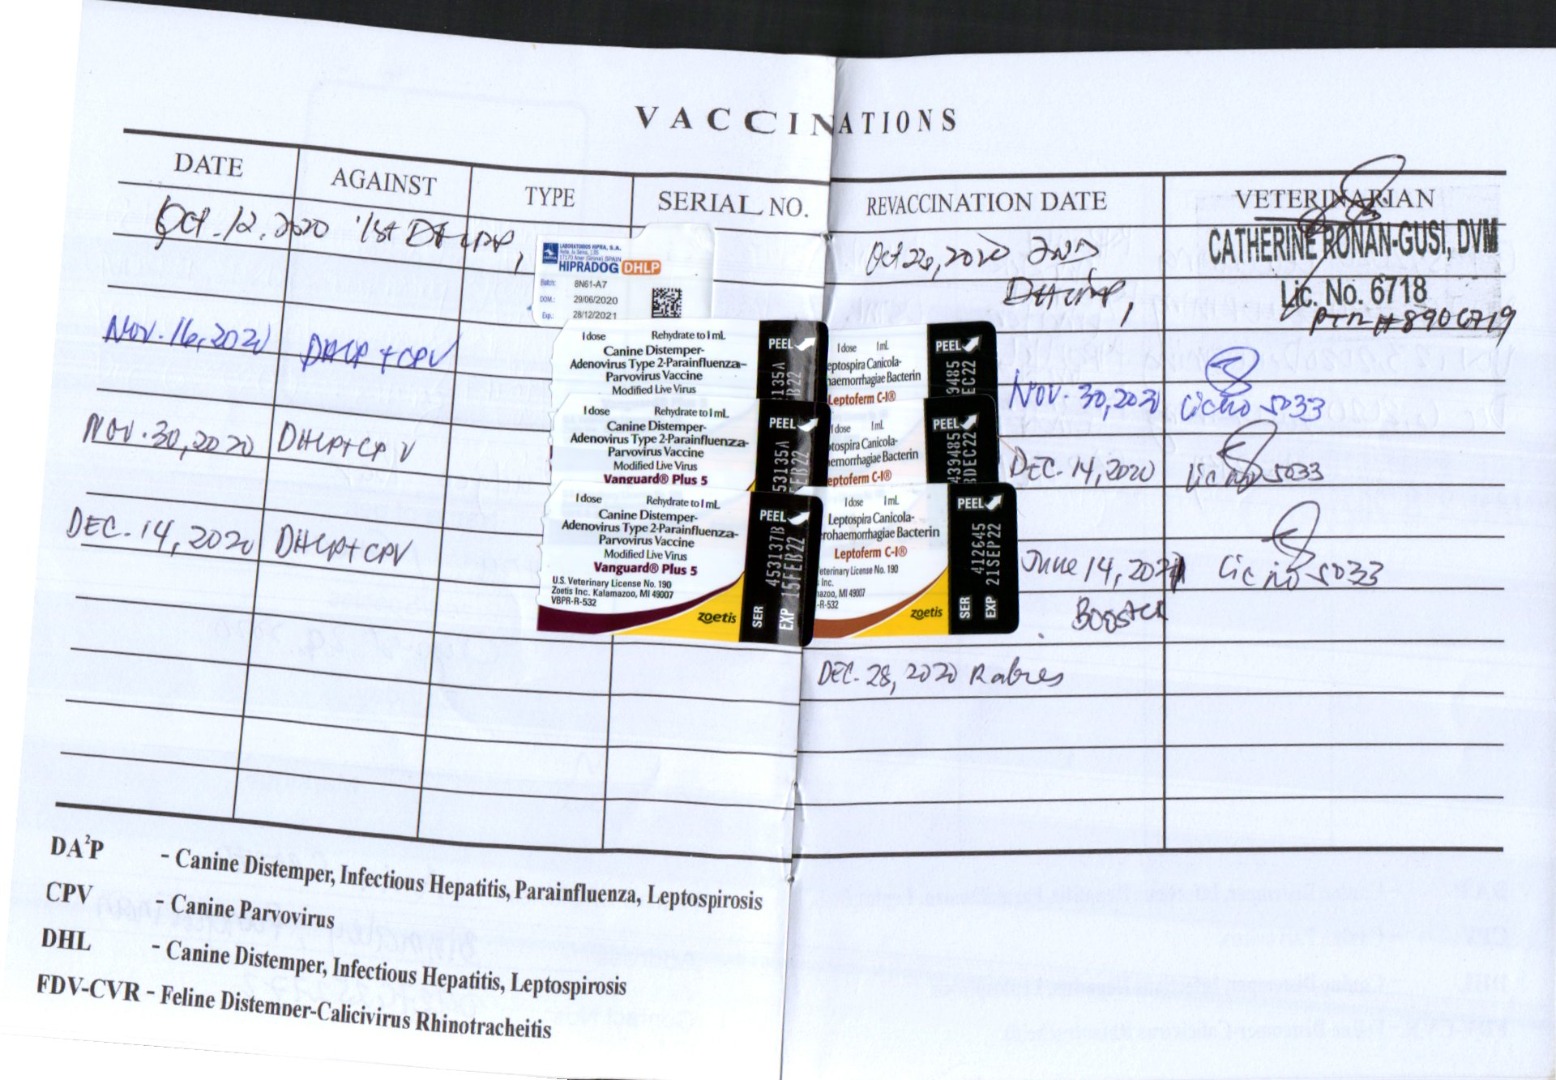 VACCINATIONS
DATE AGAINST TYPE SERIAL NO. REVACCINATION DATE VETERINARIAN
Oct. 12, 2020 1st Oct 26, 2020 2nd
CATHERINE RONAN-GUSI, DVM
Lic. No. 6718
PTR # 8906719
LABORATORIOS HIPRA, S.A.
HIPRADOG DHLP
Batch: 8N61-A7
DOM.: 29/06/2020
Exp.: 28/12/2021
NOV. 16, 2020 DHLP + CPV NOV. 30, 2020 Lic no 5033
1 dose Rehydrate to 1 mL
Canine Distemper-
Adenovirus Type 2-Parainfluenza-
Parvovirus Vaccine
Modified Live Virus
PEEL
135A
B22
1 dose 1 mL
eptospira Canicola-
haemorrhagiae Bacterin
Leptoferm C-I®
PEEL
9485
EC22
NOV. 30, 2020 DHLP+CPV DEC. 14, 2020 Lic no 5033
1 dose Rehydrate to 1 mL
Canine Distemper-
Adenovirus Type 2-Parainfluenza-
Parvovirus Vaccine
Modified Live Virus
Vanguard® Plus 5
PEEL
53135A
EB22
dose 1 mL
tospira Canicola-
emorrhagiae Bacterin
eptoferm C-I®
PEEL
439485
DEC22
DEC. 14, 2020 DHLP+CPV June 14, 2021 Lic no 5033
Booster
1 dose Rehydrate to 1 mL
Canine Distemper-
Adenovirus Type 2-Parainfluenza-
Parvovirus Vaccine
Modified Live Virus
Vanguard® Plus 5
U.S. Veterinary License No. 190
Zoetis Inc. Kalamazoo, MI 49007
VBPR-R-532
zoetis
PEEL
SER 453137B
EXP 15FEB22
1 dose 1 mL
Leptospira Canicola-
erohaemorrhagiae Bacterin
Leptoferm C-I®
eterinary License No. 190
Inc.
mazoo, MI 49007
-R-532
zoetis
PEEL
SER 412645
EXP 21SEP22
DEC. 28, 2020 Rabies
DA²P - Canine Distemper, Infectious Hepatitis, Parainfluenza, Leptospirosis
CPV - Canine Parvovirus
DHL - Canine Distemper, Infectious Hepatitis, Leptospirosis
FDV-CVR - Feline Distemper-Calicivirus Rhinotracheitis